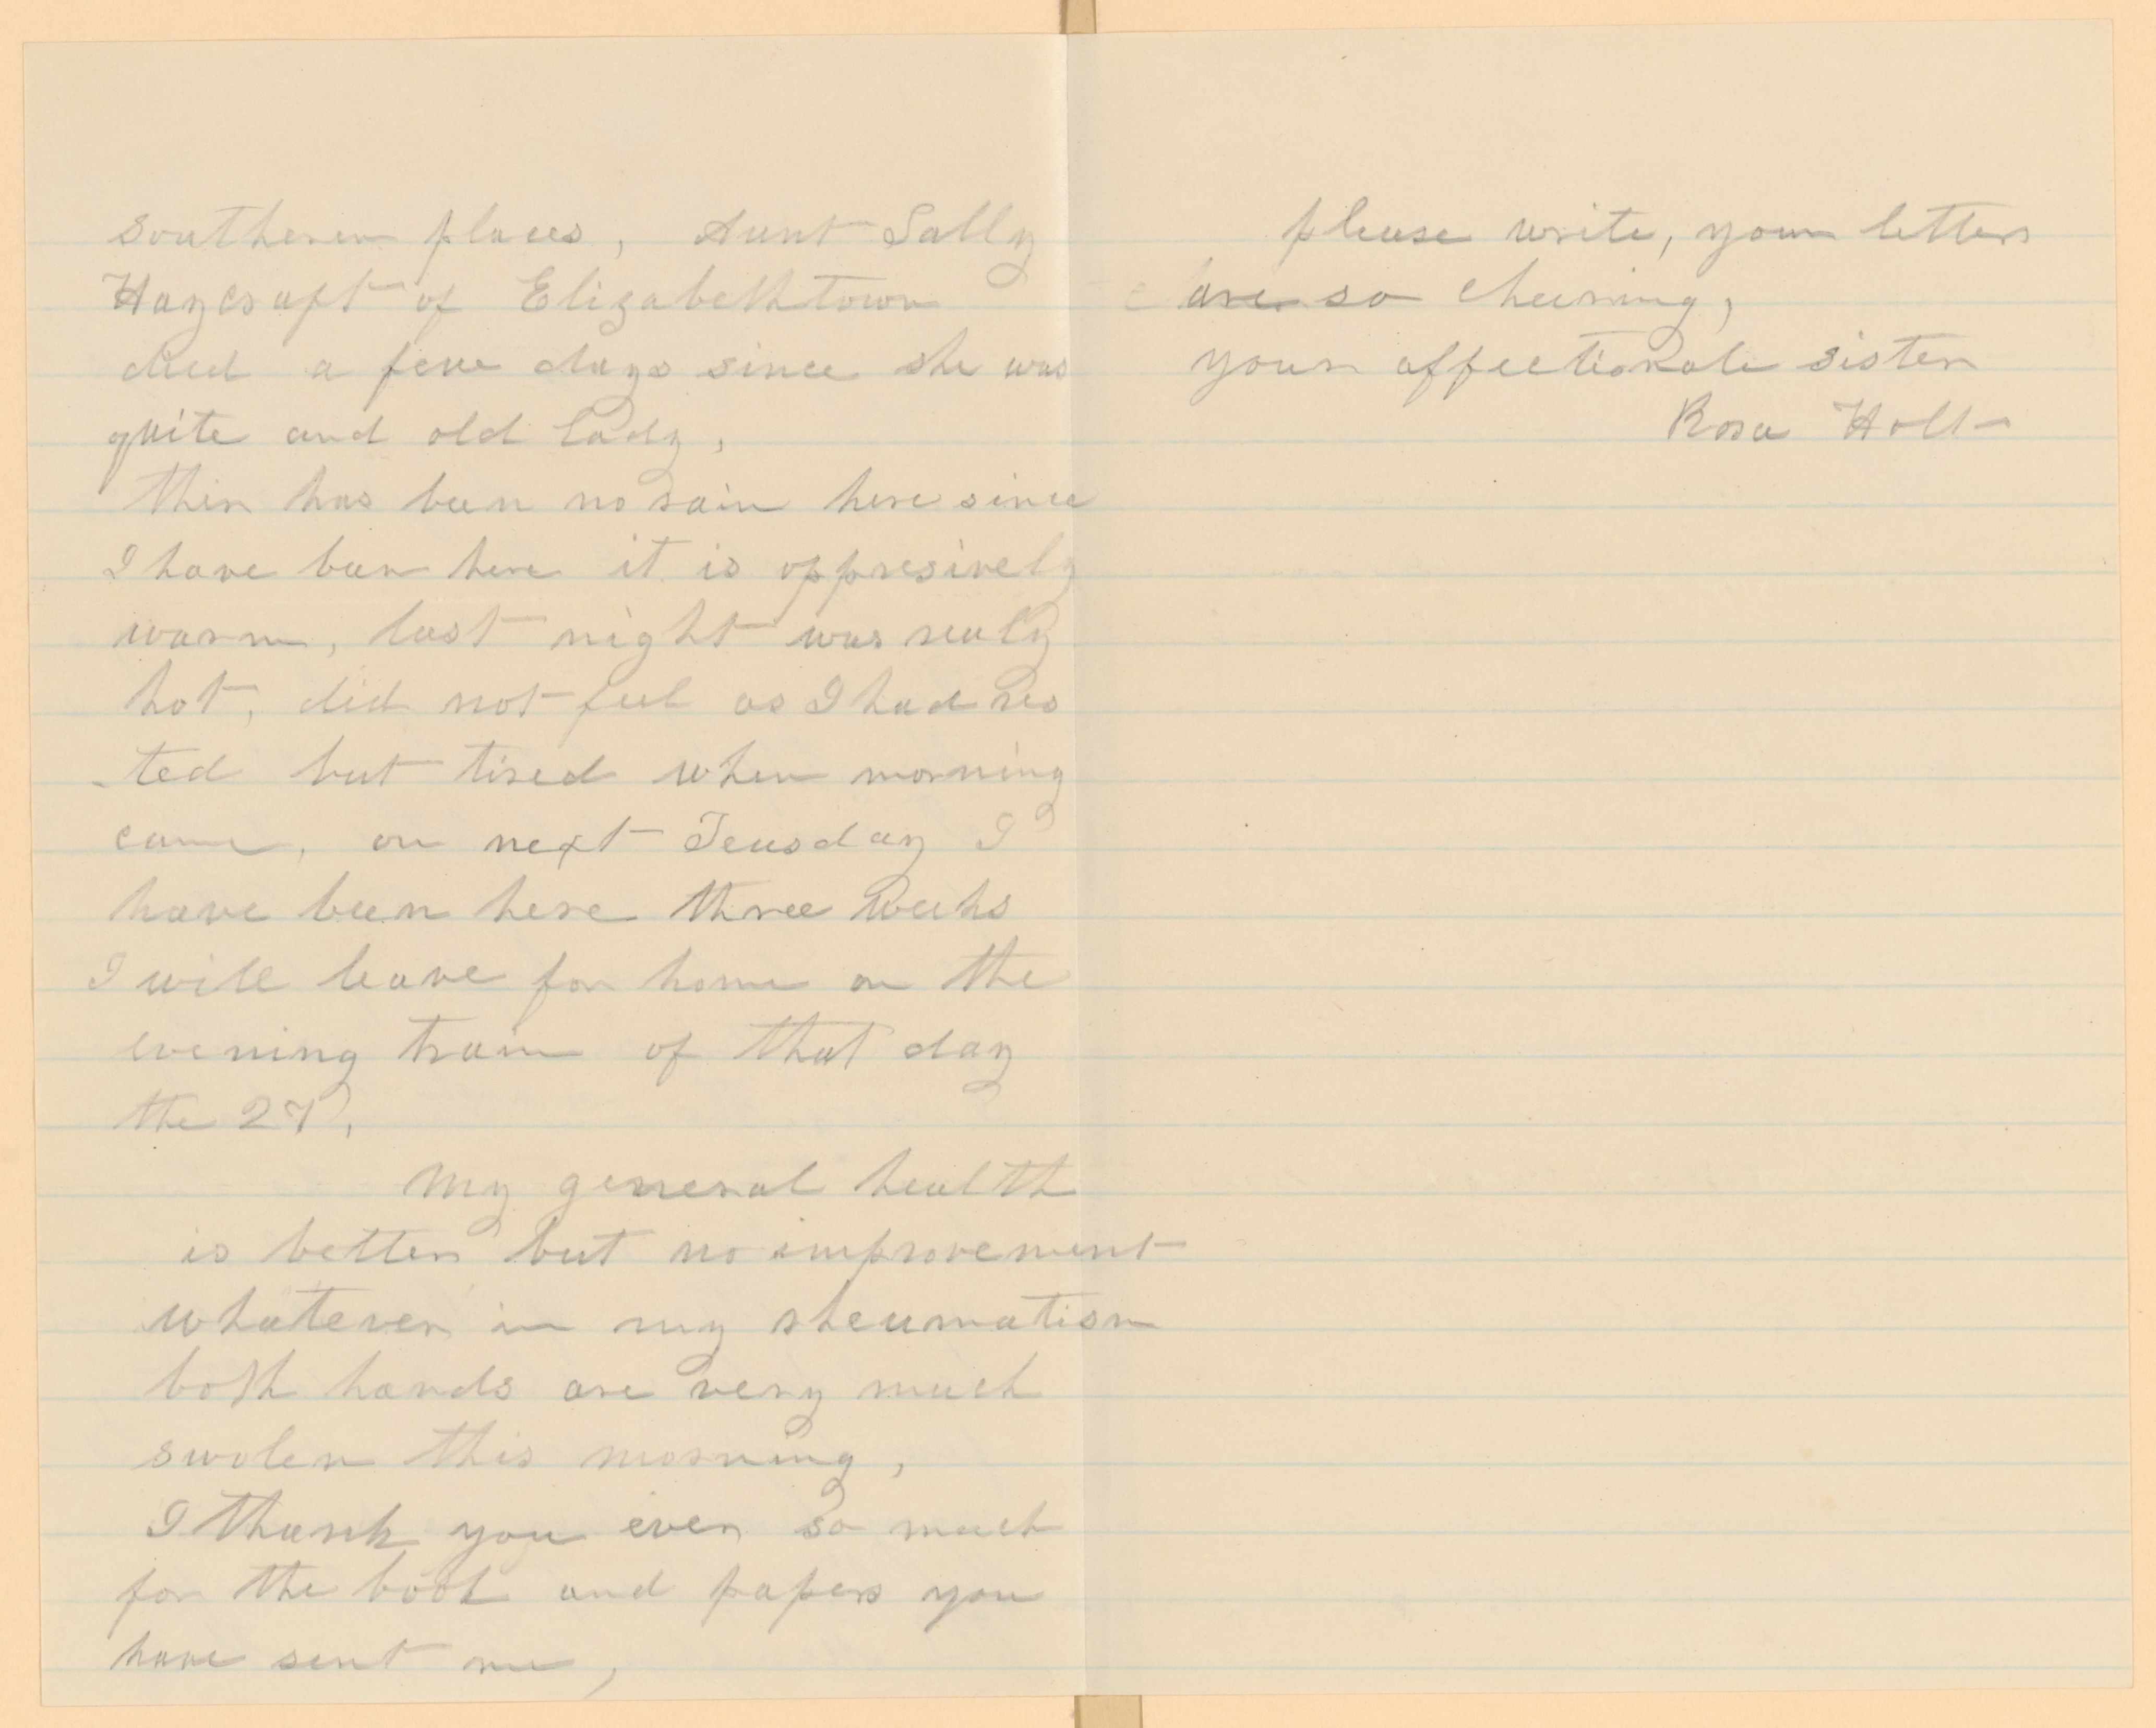 southeren places, Aunt Sally
Haycraft of Elizabethtown
died a few days since she was
quite and old lady,
ther has been no rain here since
I have ben here it is oppresively
warm, last night was realy
hot, did not feel as I had res
-ted but tired when morning
came, on next Teusday I
have been here three weeks
I will leave for home on the
evening train of that day
the 27,
My general health
is better but no improvement
whatever in my rheumatism
both hands are very much
swolen this morning,
I thank you ever so much
for the book and papers you
have sent me,
please write, your letters
are so cheering,
your affectionate sister
Rosa Holt